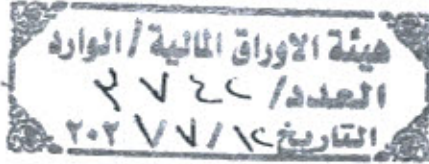 هيئة الاوراق المالية / الوارد
العدد/ ٣٧٤٢
التاريخ ١٢/٧/٢٠٢١